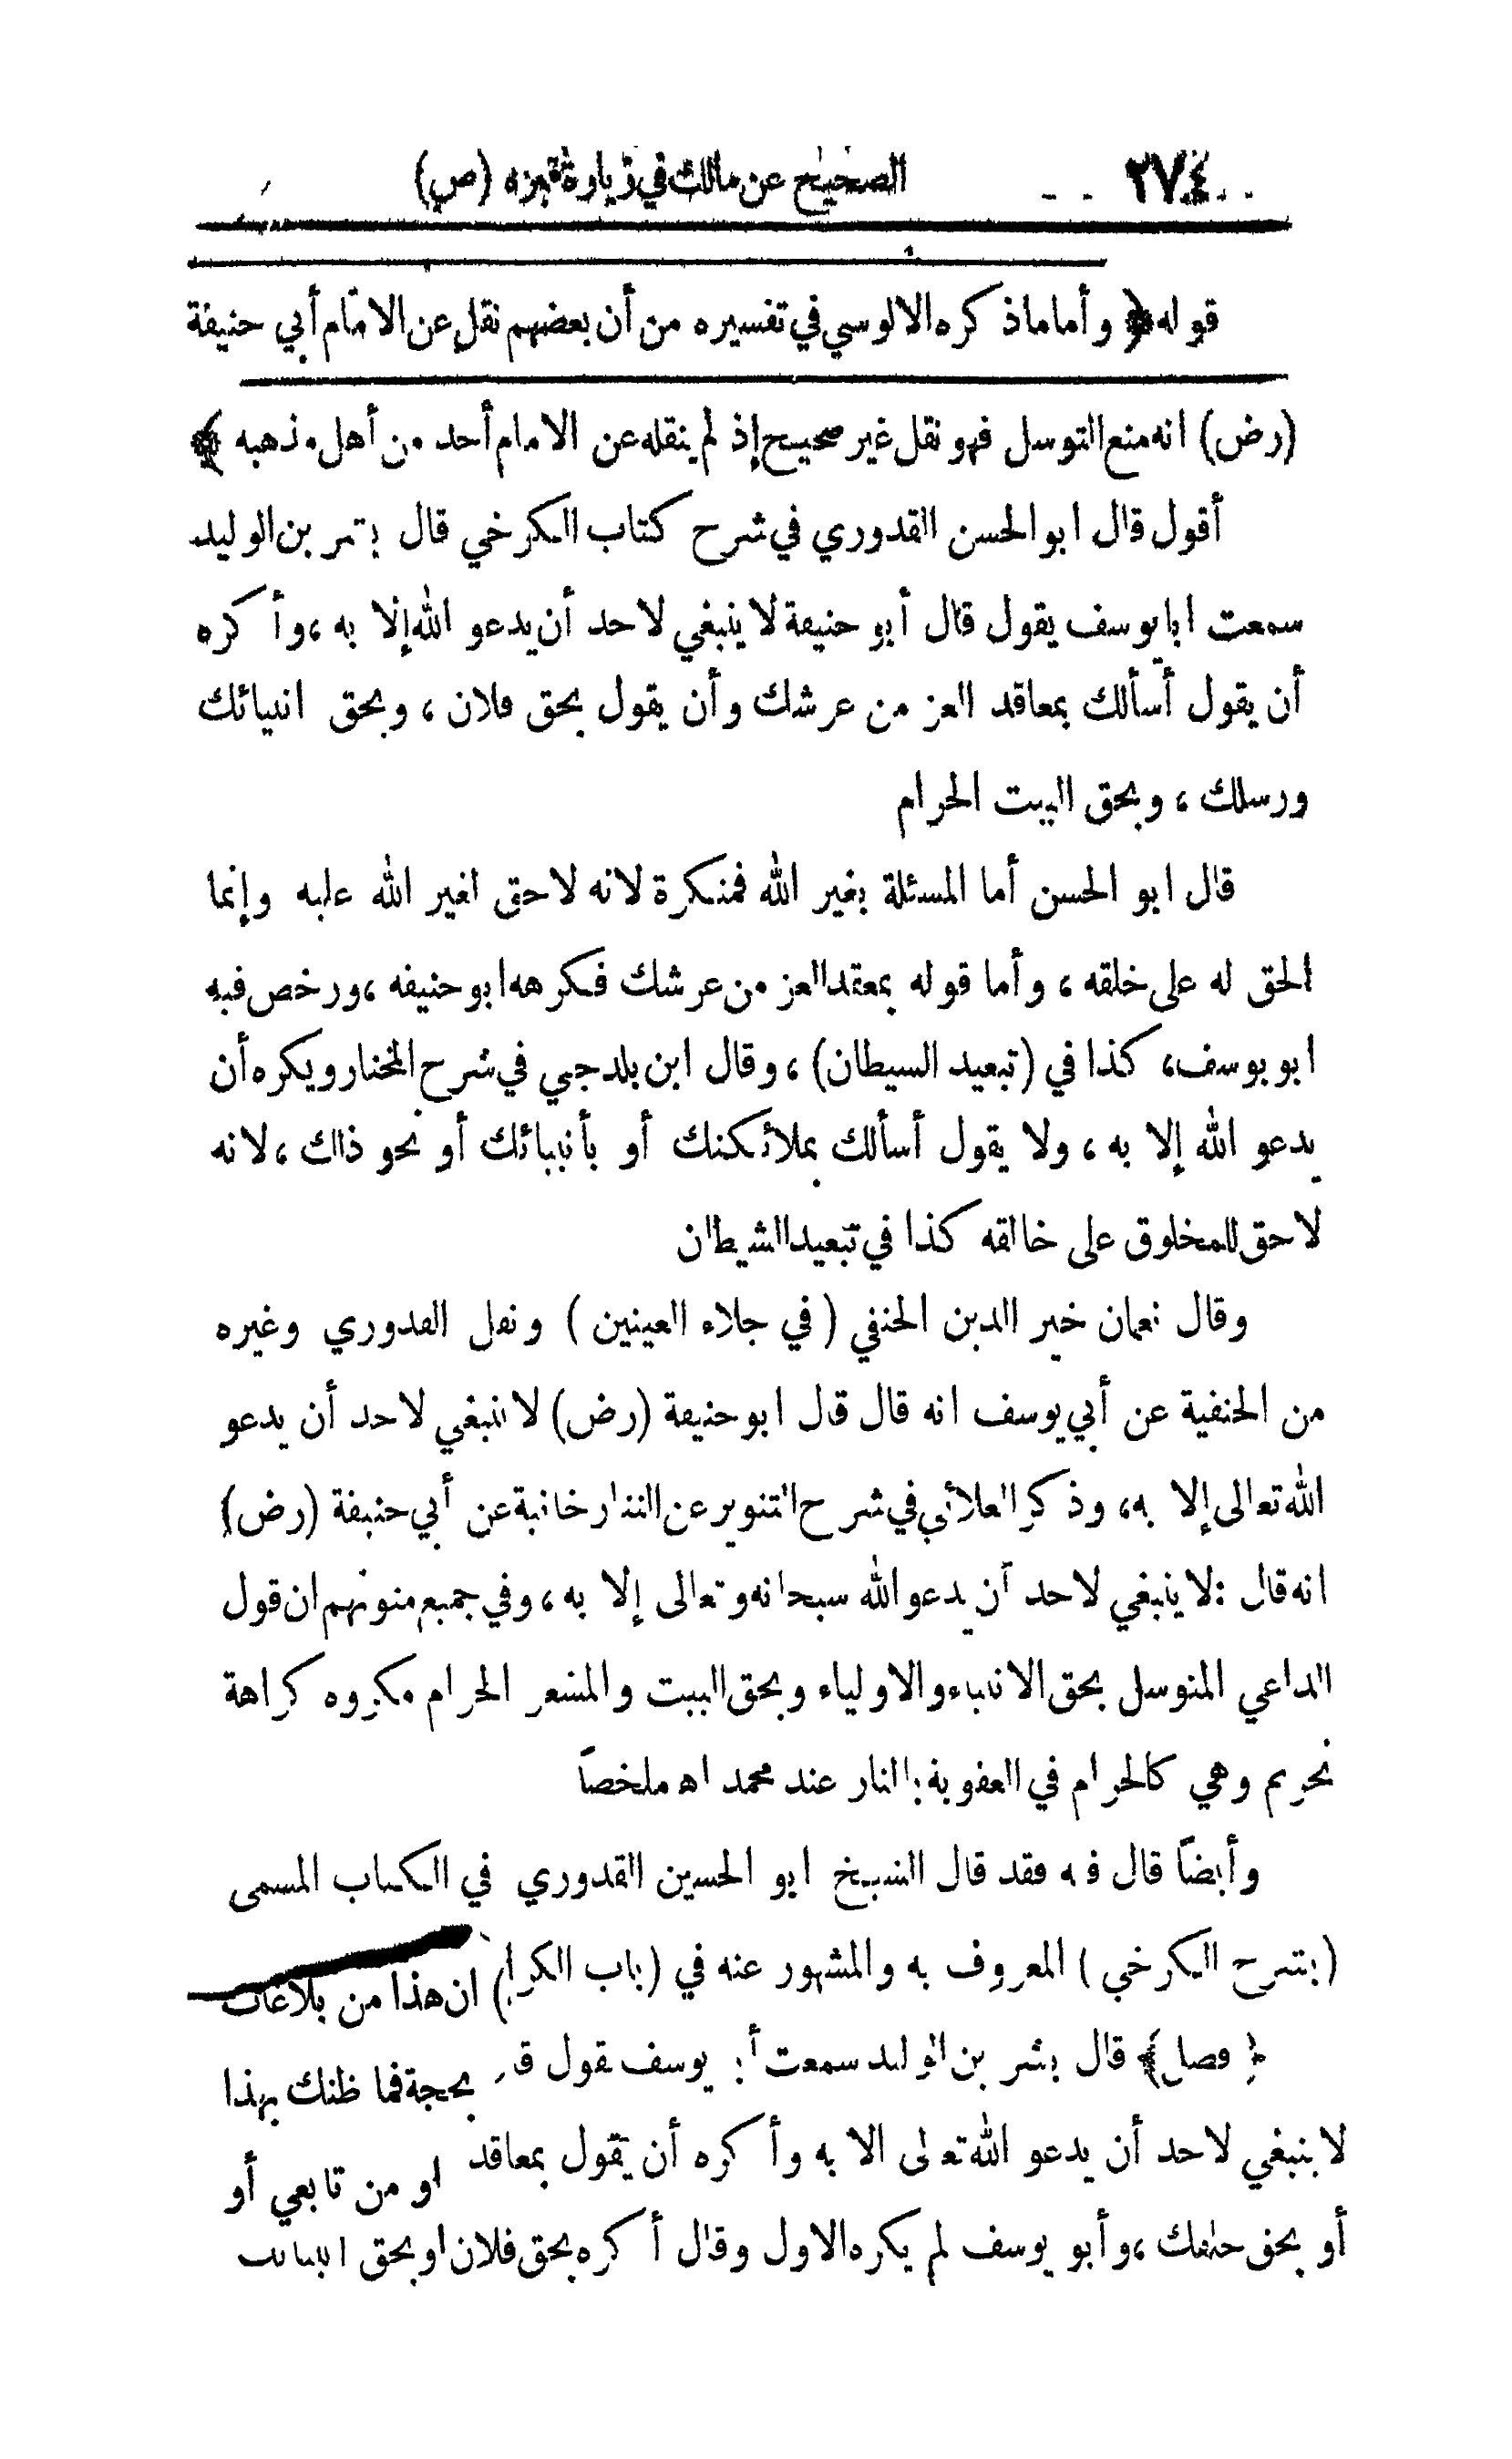 ٢٧٤ الصحيح عن مالك في زيارة قبره (ص)
قوله﴿ وأما ماذكره الالوسي في تفسيره من أن بعضهم نقل عن الامام أبي حنيفة
(رض) انه منع التوسل فهو نقل غير صحيح إذ لم ينقله عن الامام أحد من أهل مذهبه ﴾
أقول قال ابو الحسن القدوري في شرح كتاب الكرخي قال بشر بن الوليد
سمعت ابا يوسف يقول قال أبو حنيفة لا ينبغي لاحد أن يدعو الله إلا به ، وأكره
أن يقول أسألك بمعاقد العز من عرشك وأن يقول بحق فلان ، وبحق انبيائك
ورسلك ، وبحق البيت الحرام
قال ابو الحسن أما المسئلة بغير الله فمنكرة لانه لا حق لغير الله عليه وإنما
الحق له على خلقه ، وأما قوله بمعقد العز من عرشك فكرهه ابو حنيفه ، ورخص فيه
ابو يوسف، كذا في (تبعيد الشيطان) ، وقال ابن بلدجي في شرح المختار ويكره أن
يدعو الله إلا به ، ولا يقول أسألك بملائكتك أو بأنبيائك أو نحو ذلك ، لانه
لا حق للمخلوق على خالقه كذا في تبعيد الشيطان
وقال نعمان خير الدين الحنفي ( في جلاء العينين ) ونقل القدوري وغيره
من الحنفية عن أبي يوسف انه قال قال ابو حنيفة (رض) لا ينبغي لاحد أن يدعو
الله تعالى إلا به، وذكر العلائي في شرح التنوير عن التتارخانية عن أبي حنيفة (رض)
انه قال : لا ينبغي لاحد أن يدعو الله سبحانه وتعالى إلا به ، وفي جميع متونهم ان قول
الداعي المتوسل بحق الانبياء والاولياء وبحق البيت والمشعر الحرام مكروه كراهة
تحريم وهي كالحرام في العقوبة بالنار عند محمد اه ملخصاً
وأيضاً قال فيه فقد قال الشيخ ابو الحسين القدوري في الكتاب المسمى
(بشرح الكرخي ) المعروف به والمشهور عنه في (باب الكرا) ان هذا من بلاغات
﴿ فصل ﴾ قال بشر بن الوليد سمعت أبا يوسف يقول بحجة فما ظنك بهذا
لا ينبغي لاحد أن يدعو الله تعالى الا به وأكره أن يقول بمعاقد او من تابعي أو
أو بحق خلقك ، وأبو يوسف لم يكره الاول وقال أكره بحق فلان او بحق انبيائك